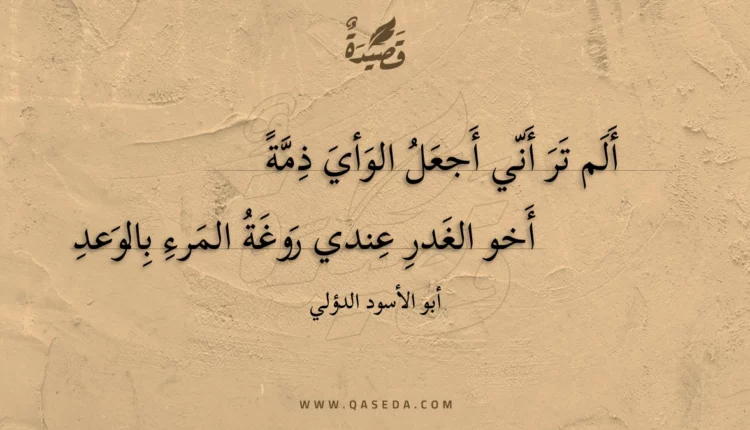 قَصِيدَةٌ
أَلَم تَرَ أَنّي أَجعَلُ الوَأيَ ذِمَّةً
أَخو الغَدرِ عِندي رَوغَةُ المَرءِ بِالوَعدِ
أبو الأسود الدؤلي
WWW.QASEDA.COM